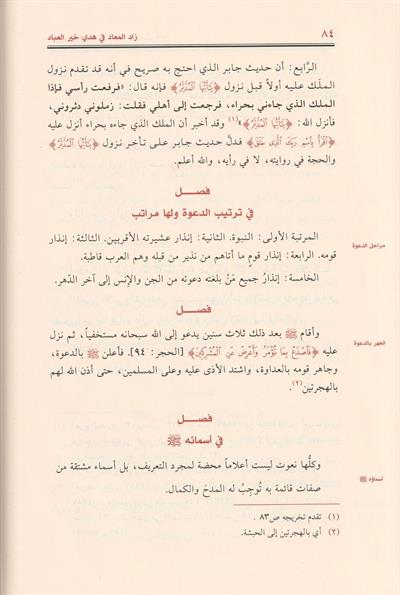 ٨٤
زاد المعاد في هدي خير العباد
الرَّابع: أن حديث جابر الذي احتج به صريح في أنه قد تقدم نزول
الملَك عليه أولاً قبل نزول ﴿يَٰٓأَيُّهَا ٱلْمُدَّثِّرُ﴾ فإنه قال: «فرفعت رأسي فإذا
الملك الذي جاءني بحراء، فرجعت إلى أهلي فقلت: زملوني دثروني،
فأنزل الله: ﴿يَٰٓأَيُّهَا ٱلْمُدَّثِّرُ﴾»(١) وقد أخبر أن الملك الذي جاءه بحراء أنزل عليه
﴿ٱقْرَأْ بِٱسْمِ رَبِّكَ ٱلَّذِى خَلَقَ﴾ فدلَّ حديث جابر على تأخر نزول ﴿يَٰٓأَيُّهَا ٱلْمُدَّثِّرُ﴾
والحجة في روايته، لا في رأيه، والله أعلم.
فصل
في ترتيب الدعوة ولها مراتب
مراحل الدعوة
المرتبة الأولى: النبوة. الثانية: إنذار عشيرته الأقربين. الثالثة: إنذار
قومه. الرابعة: إنذار قومٍ ما أتاهم من نذير من قبله وهم العرب قاطبة.
الخامسة: إنذارُ جميع مَنْ بلغته دعوته من الجن والإنس إلى آخر الدّهر.
فصل
الجهر بالدعوة
وأقام ﷺ بعد ذلك ثلاث سنين يدعو إلى الله سبحانه مستخفياً، ثم نزل
عليه ﴿فَٱصْدَعْ بِمَا تُؤْمَرُ وَأَعْرِضْ عَنِ ٱلْمُشْرِكِينَ﴾ [الحجر: ٩٤]. فأعلن ﷺ بالدعوة،
وجاهر قومه بالعداوة، واشتد الأذى عليه وعلى المسلمين، حتى أذن الله لهم
بالهجرتين(٢).
فصل
في أسمائه ﷺ
أسماؤه ﷺ
وكلُّها نعوت ليست أعلاماً محضة لمجرد التعريف، بل أسماء مشتقة من
صفات قائمة به تُوجِبُ له المدحَ والكمال.
(١) تقدم تخريجه ص٨٣.
(٢) أي بالهجرتين إلى الحبشة.